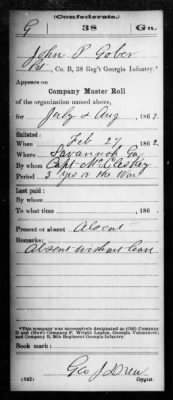 (Confederate.)
G 38 Ga.
John P Gober
Pvt., Co. B, 38 Reg't Georgia Infantry.*
Appears on
Company Muster Roll
of the organization named above,
for July & Aug, 1863.
Enlisted:
When Feb 27, 1862.
Where Savannah Ga
By whom Capt
Period 3 yrs or the War
Last paid:
By whom
To what time , 186 .
Present or absent Absent
Remarks:
Absent without leave
*This company was successively designated as (Old) Company
D and (New) Company F, Wright Legion, Georgia Volunteers;
and Company B, 38th Regiment Georgia Infantry.
Book mark:
Geo J Drew
(642) Copyist.